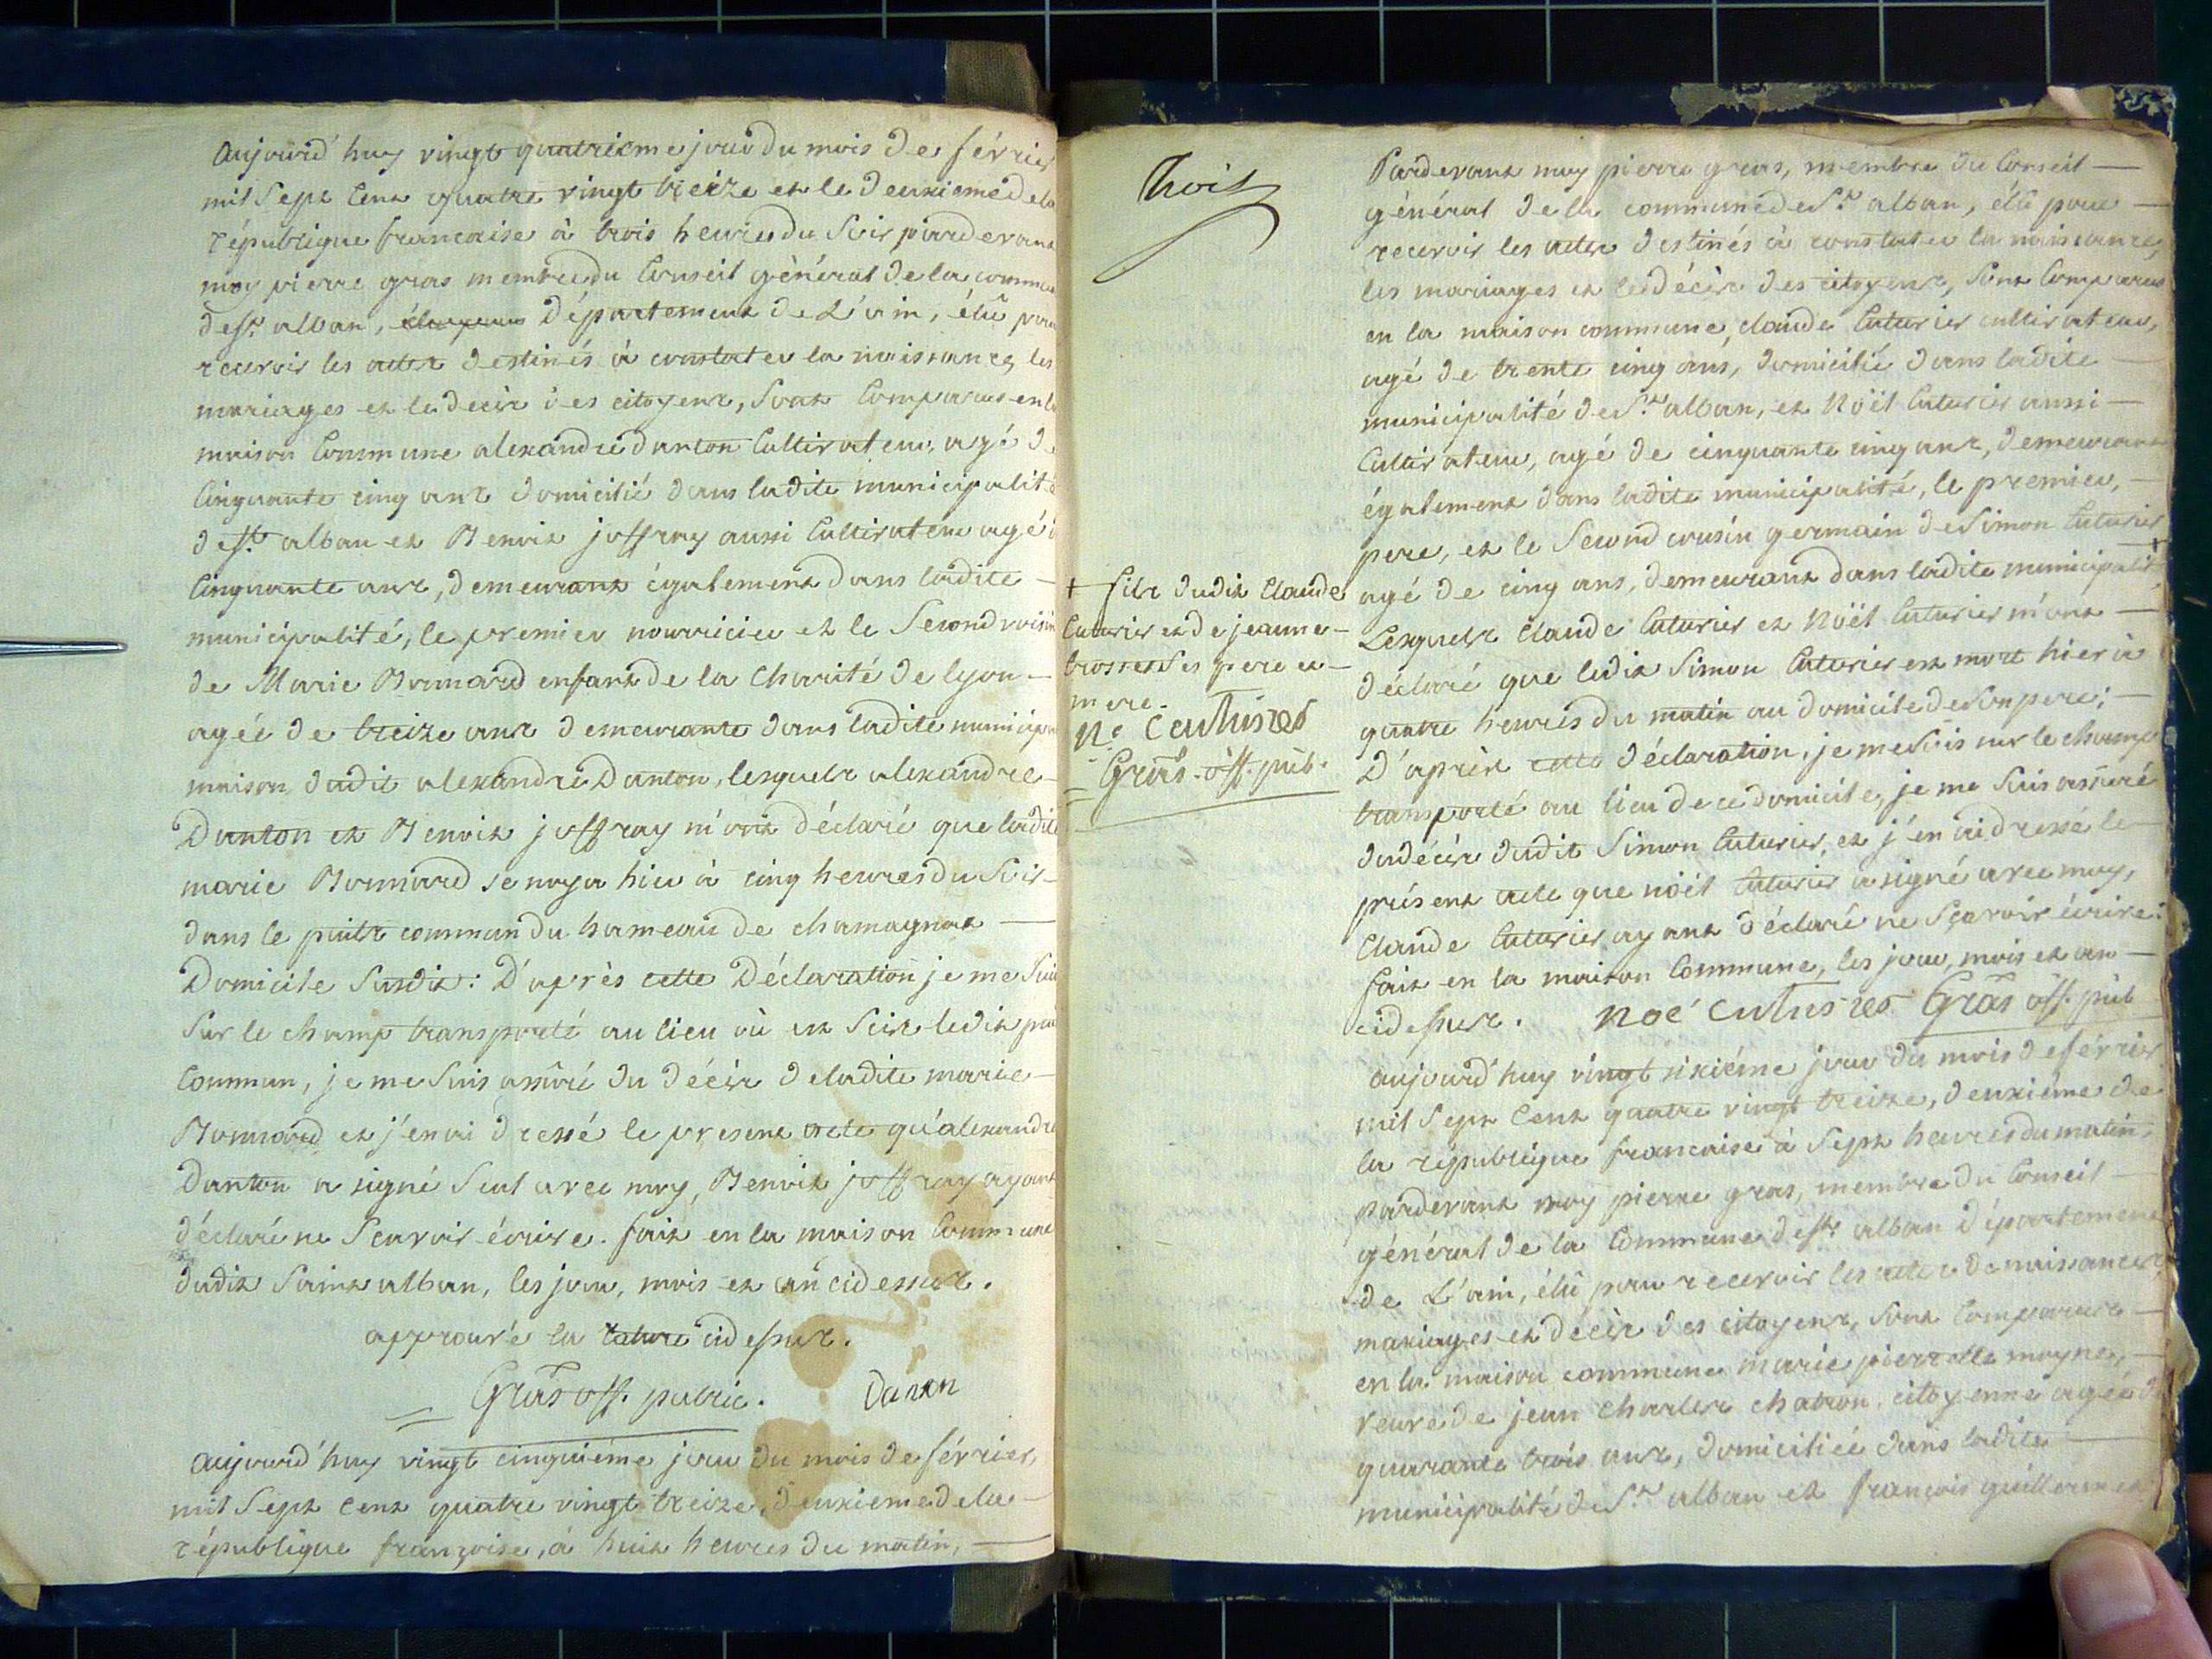 aujourd'huy vingt quatrieme jour du mois de février
mil sept cent quatre vingt treize et le deuxieme de la
république francaise à trois heures du soir pardevant
moy pierre gras membre du Conseil général de la commune
de st. alban, département de L'ain, élû pour
recevoir les actes destinés à constater la naissance, les
mariages et le decès des citoyens, sont Comparus en la
maison Commune alexandre danton Cultivateur, agé de
Cinquante cinq ans domicilié dans ladite municipalité
de st. alban et Benoit joffray aussi Cultivateur agé de
Cinquante ans, demeurant également dans ladite –
municipalité, le premier nourricier et le Second voisin
de Marie Bonnard enfant de la Charité de lyon –
agée de treize ans demeurante dans ladite municipa
maison dudit alexandre Danton, lesquels alexandre –
Danton et Benoit joffray m'ont déclaré que ladite
marie Bonnard se noya hier à cinq heures du Soir –
dans le puits commun du hameau de chamagnat —
Domicile Susdit: D'après cette Déclaration je me Suis
Sur le champ transporté au lieu où est Scis ledit puit
Commun, je me Suis assûré du décès de ladite marie –
Bonnard et j'en ai dressé le present acte qu'alexandre
Danton a signé Seul avec moy, Benoit joffray ayant
déclaré ne Scavoir écrire. fait en la maison Commune
dudit Saint alban, les jour, mois et an cidessus.
approuvé la rature cidessus.
Gras off. public. Danton
aujourd'huy vingt cinquiéme jour du mois de février,
mil Sept Cent quatre vingt treize, deuxieme de la –
république françoise, à huit heures du matin, —
Trois
+ fils dudit Claude
Cuturier et de jeanne –
brosse Ses pere et –
mere.
Gras. off. pub.
Pardevant moy pierre gras, membre du Conseil —
général de la commune de St. alban, élû pour —
recevoir les actes destinés à constater la naissance,
les mariages et le décès des citoyens, Sont Comparus
en la maison commune, claude Cuturier cultivateur,
agé de trente cinq ans, domicilié dans ladite —
municipalité de St. alban, et Noël Cuturier aussi —
Cultivateur, agé de cinquante cinq ans, demeurant
également dans ladite municipalité, le premier, –
pere, et le Second cousin germain de Simon Cuturier
agé de cinq ans, demeurant dans ladite municipalité +
Lesquels Claude Cuturier et Noël Cuturier m'ont —
déclaré que ledit Simon Cuturier est mort hier à
quatre heures du matin au domicile de Son pere; –
D'après cette déclaration, je me Suis sur le champ
transporté au lieu de ce domicile, je me Suis assuré
du décès dudit Simon Cuturier, et j'en ai dressé le
présent acte que noël Cuturier a signé avec moy,
Claude Cuturier ayant déclaré ne Scavoir écrire:
fait en la maison Commune, les jour, mois et an –
cidessus. Gras off. pub
aujourd'huy vingt sixiéme jour du mois de février
mil Sept Cent quatre vingt treize, deuxieme de
la république francaise à Sept heures du matin,
pardevant moy pierre gras, membre du Conseil –
général de la Commune de st. alban département
de L'ain, élû pour recevoir les actes de naissances,
mariages et décès des citoyens, Sont Comparus –
en la maison commune marie pierrette moyne, –
veuve de jean charles chatron, citoyenne agée de
quarante trois ans, domiciliée dans ladite —
municipalité de St. alban et françois guillermet